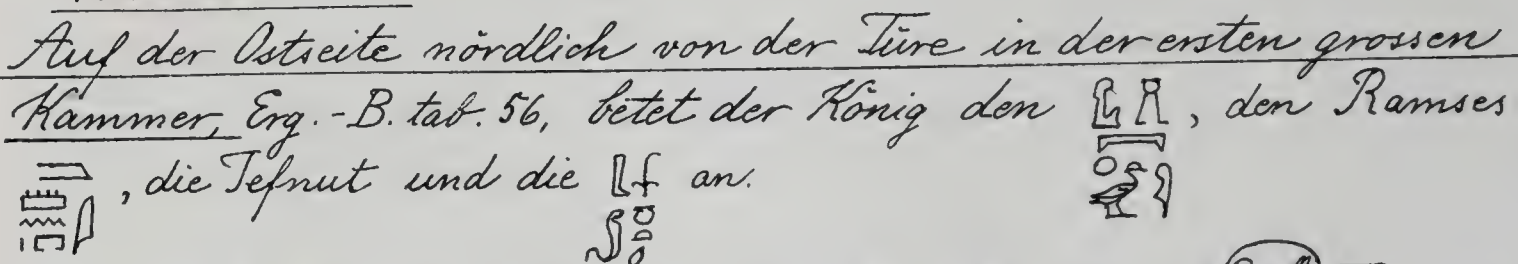 Auf der Ostseite nördlich von der Türe in der ersten grossen
Kammer, Erg.-B. tab. 56, betet der König den , den Ramses
, die Tefnut und die an.